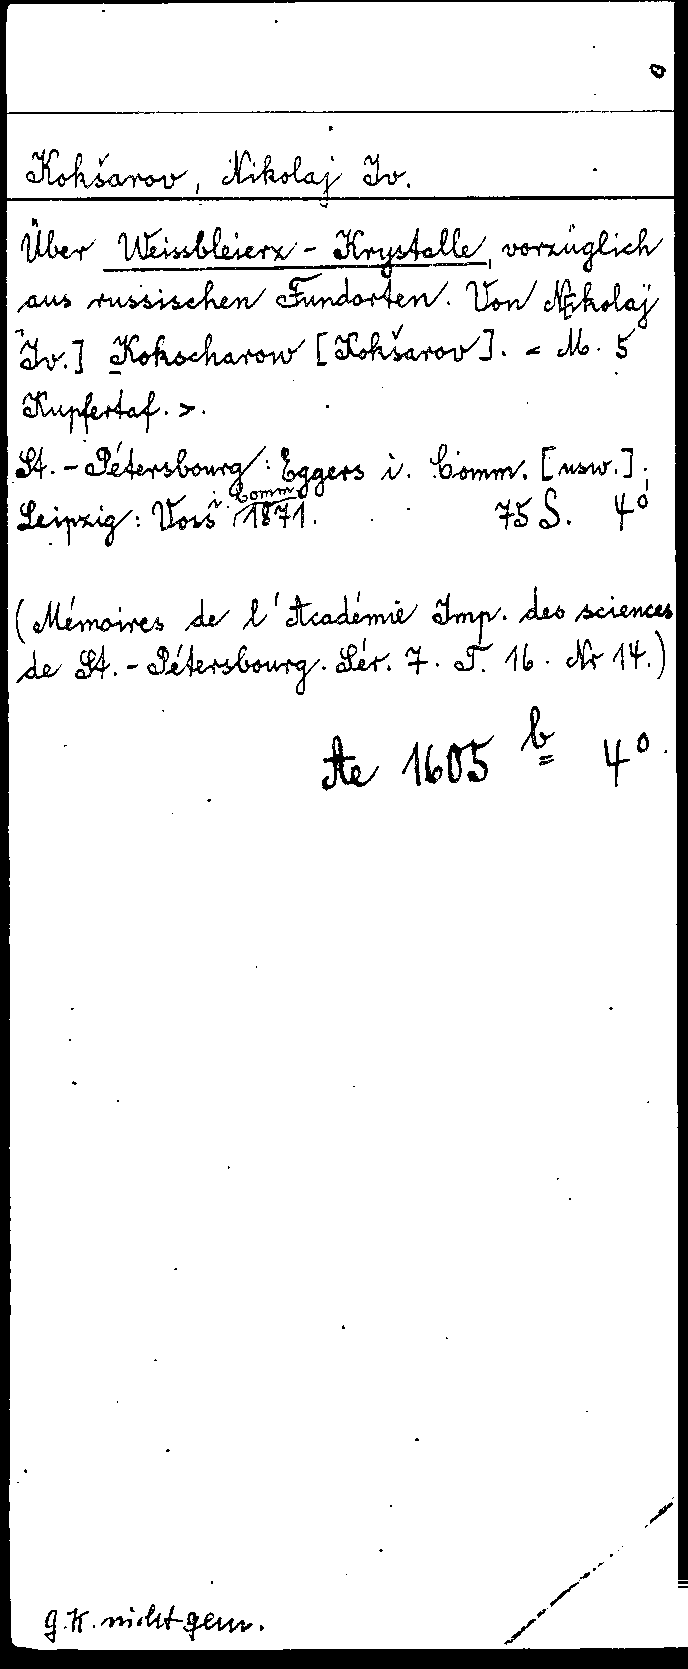 Kokšarov, Nikolaj Iv.
Über Weissbleierz-Krystalle, vorzüglich
aus russischen Fundorten. Von N[ikolaj
Iv.] Kokscharow [Kokšarov]. < M. 5
Kupfertaf. >.
St.-Pétersbourg: Eggers i. Comm. [usw.];
Leipzig: Voss i. Comm. 1871. 75 S. 4°
(Mémoires de l'Académie Imp. des sciences
de St.-Pétersbourg. Sér. 7. T. 16. Nr 14.)
Ae 1605 b 4°.
g.K. nicht gem.